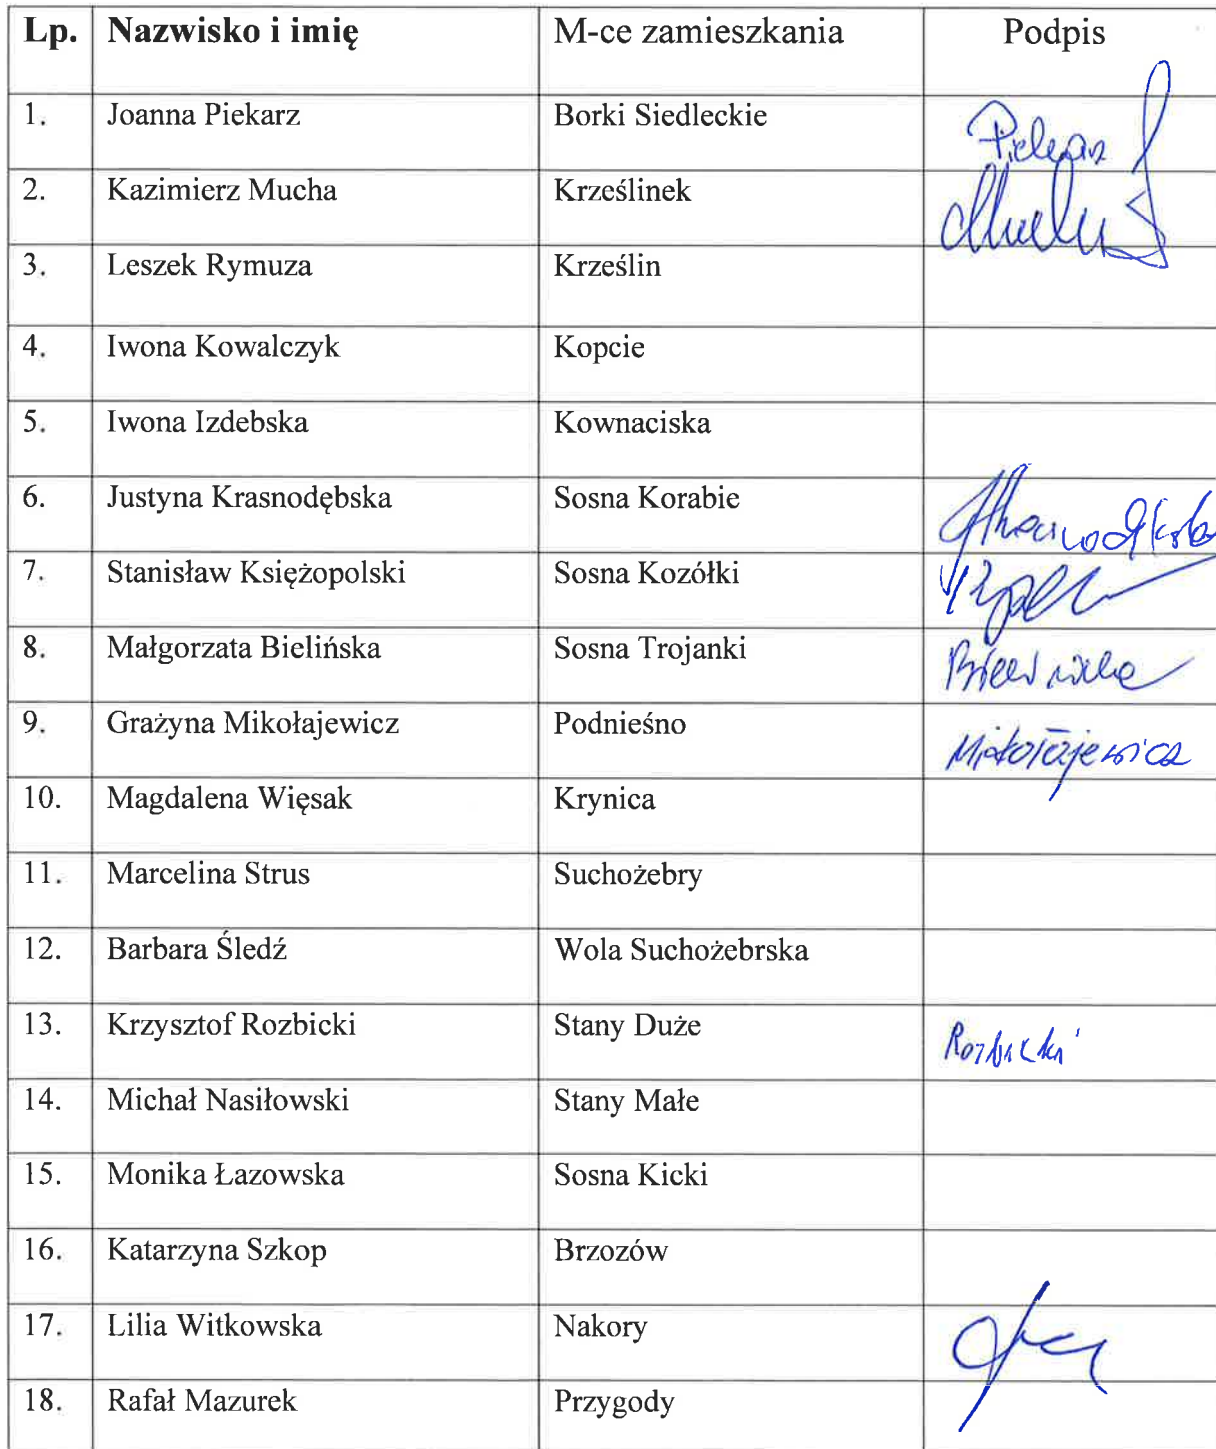 Lp. Nazwisko i imię M-ce zamieszkania Podpis
1. Joanna Piekarz Borki Siedleckie Piekarz
2. Kazimierz Mucha Krześlinek Mucha
3. Leszek Rymuza Krześlin
4. Iwona Kowalczyk Kopcie
5. Iwona Izdebska Kownaciska
6. Justyna Krasnodębska Sosna Korabie
7. Stanisław Księżopolski Sosna Kozółki
8. Małgorzata Bielińska Sosna Trojanki Bielińska
9. Grażyna Mikołajewicz Podnieśno Mikołajewicz
10. Magdalena Więsak Krynica
11. Marcelina Strus Suchożebry
12. Barbara Śledź Wola Suchożebrska
13. Krzysztof Rozbicki Stany Duże Rozbicki
14. Michał Nasiłowski Stany Małe
15. Monika Łazowska Sosna Kicki
16. Katarzyna Szkop Brzozów
17. Lilia Witkowska Nakory
18. Rafał Mazurek Przygody